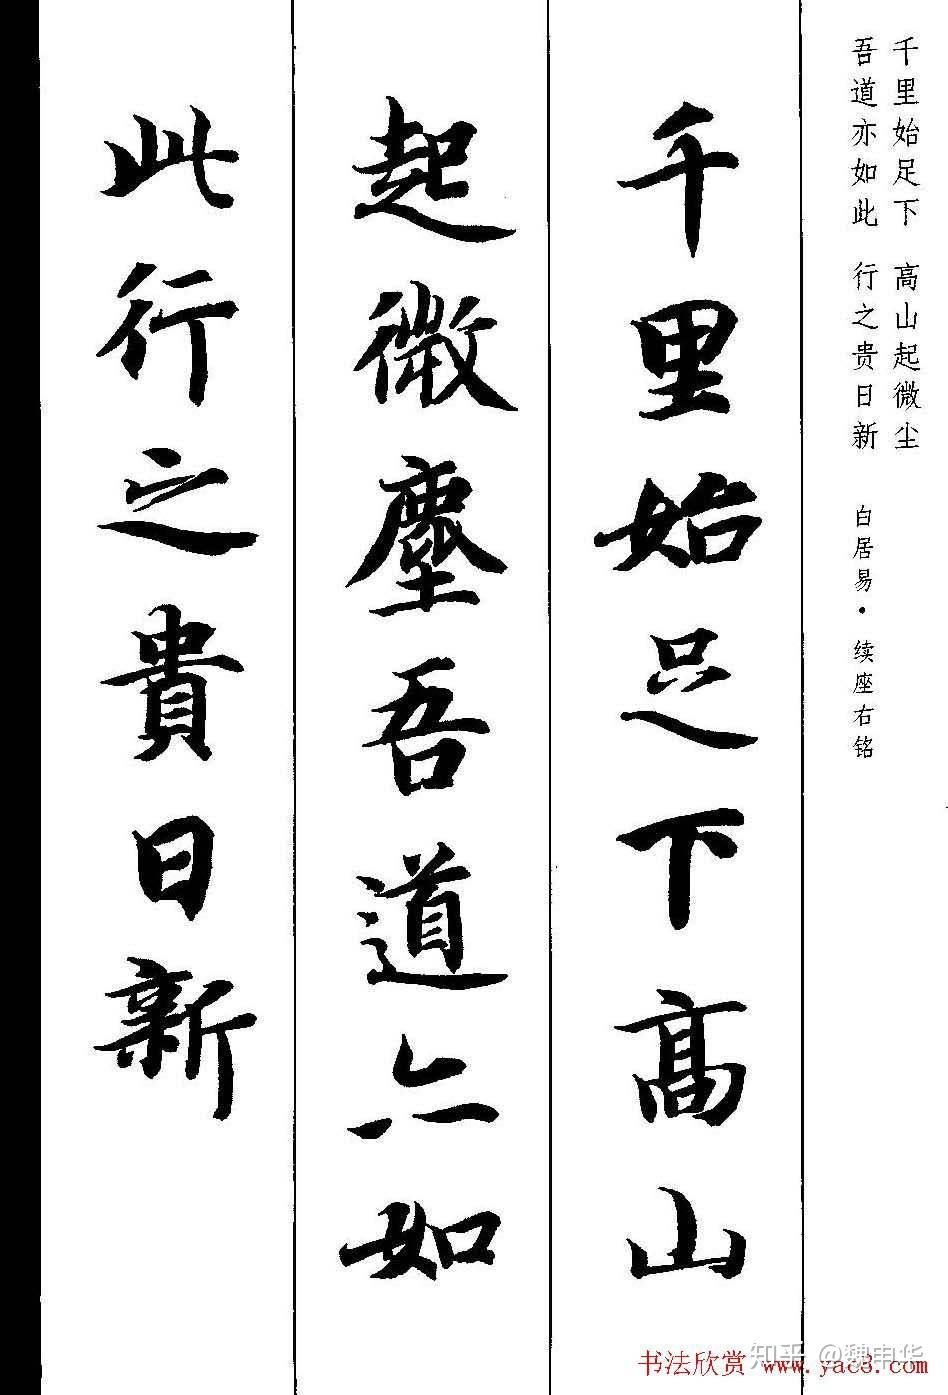 千里始足下 高山起微尘
吾道亦如此 行之贵日新
白居易·续座右铭
千里始足下高山
起微塵吾道亦如
此行之貴日新
知乎 @魏申华
书法欣赏 www.yac3.com